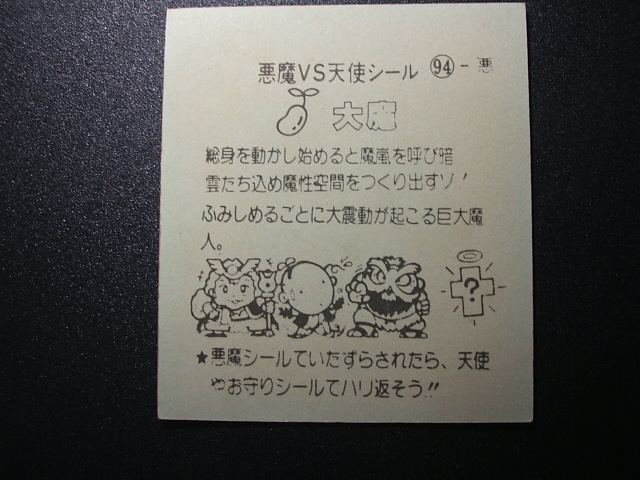 悪魔VS天使シール 94-悪
大魔
総身を動かし始めると魔嵐を呼び暗
雲たち込め魔性空間をつくり出すゾ！
ふみしめるごとに大震動が起こる巨大魔
人。
?
★悪魔シールでいたずらされたら、天使
やお守りシールでハリ返そう!!